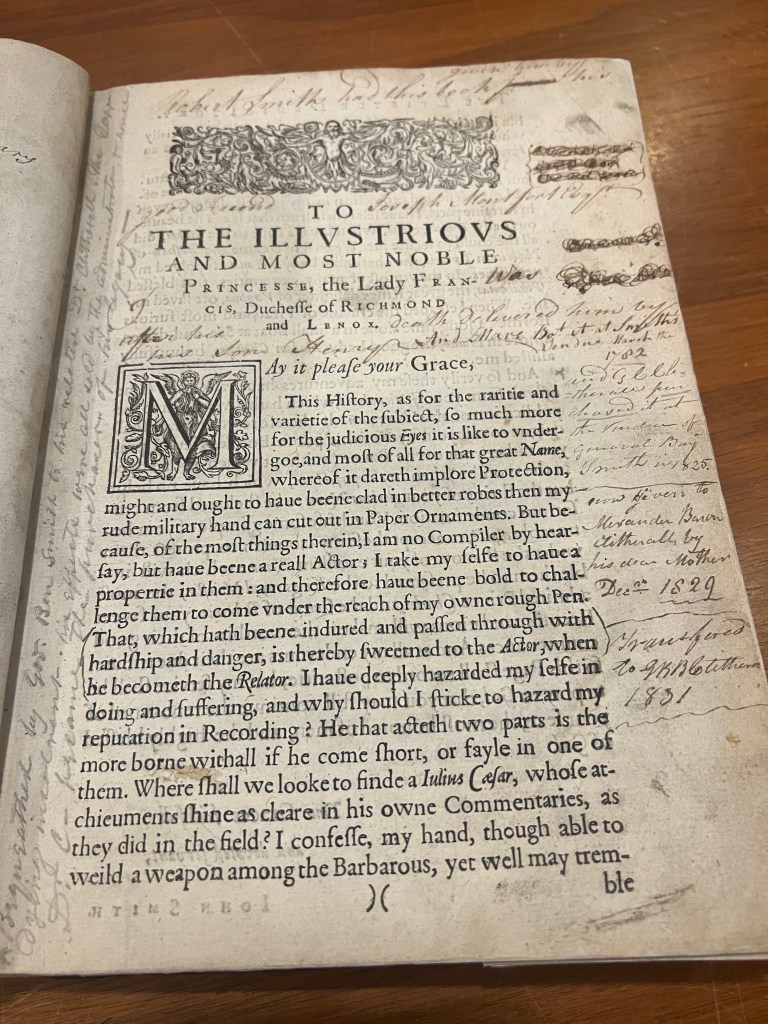 Robert Smith had this book
given him by his
good friend Joseph Montfort Esqr
TO
THE ILLVSTRIOVS
AND MOST NOBLE
PRINCESSE, the Lady FRAN-
was
CIS, Ducheſſe of RICHMOND
and LENOX.
death delivered him by
after his
his son Henry
And I have Bot it at Smith's
Vendue March the
1782
MAy it pleaſe your Grace,
This Hiſtory, as for the raritie and
varietie of the ſubiect, ſo much more
for the judicious Eyes it is like to vnder-
goe, and moſt of all for that great Name,
whereof it dareth implore Protection,
might and ought to haue beene clad in better robes then my
rude military hand can cut out in Paper Ornaments. But be-
cauſe, of the moſt things therein, I am no Compiler by hear-
ſay, but haue beene a reall Actor; I take my ſelfe to haue a
propertie in them: and therefore haue beene bold to chal-
lenge them to come vnder the reach of my owne rough Pen.
That, which hath beene indured and paſſed through with
hardſhip and danger, is thereby ſweetned to the Actor, when
he becometh the Relator. I haue deeply hazarded my ſelfe in
doing and ſuffering, and why ſhould I ſticke to hazard my
reputation in Recording? He that acteth two parts is the
more borne withall if he come ſhort, or fayle in one of
them. Where ſhall we looke to finde a Iulius Cæſar, whoſe at-
chieuments ſhine as cleare in his owne Commentaries, as
they did in the field? I confeſſe, my hand, though able to
weild a weapon among the Barbarous, yet well may trem-
)(
ble
chased it at
the Vendue of
General Benj
Smith in 1825.
now given to
Alexander Baron
Clitherall, by
his dear Mother
Decr 1829
Transfered
to GKBClitherall
1831
Bequeathed by Gov. Ben Smith to his relative Dr Clitherall. The Govr
dying insolvent his effects were all sold by the Administrator & wife
Dr C became the purchaser of